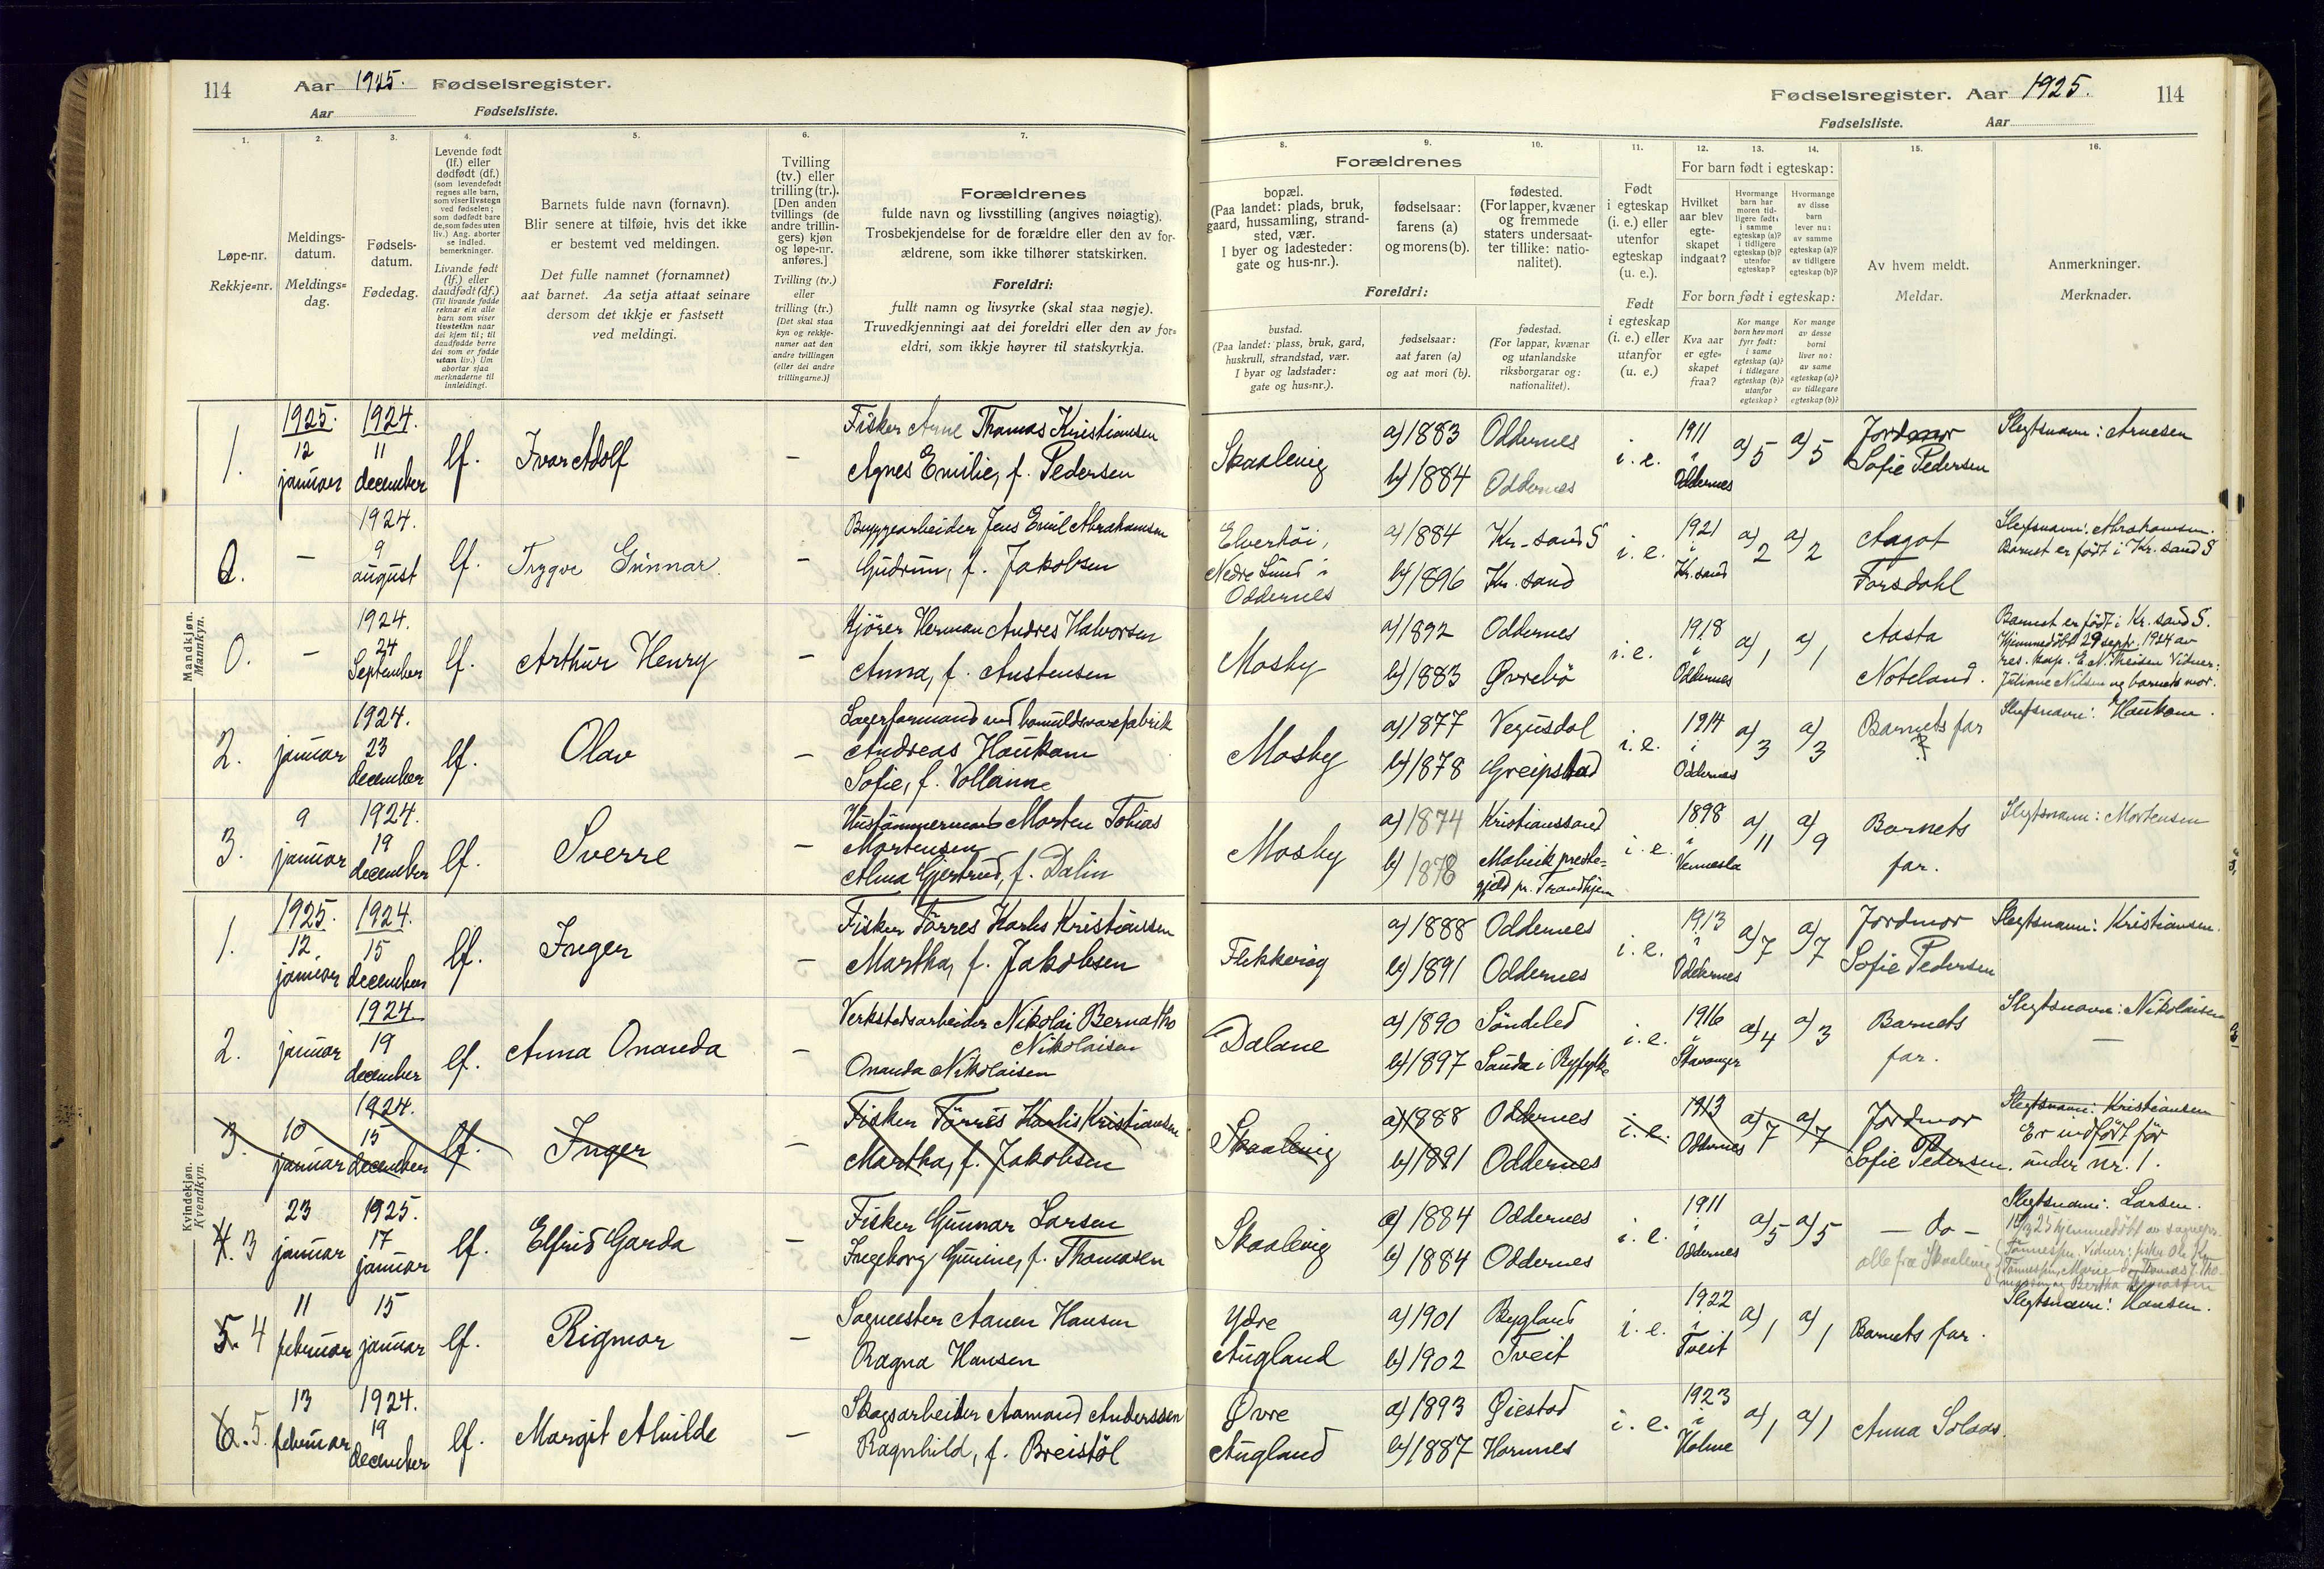 114
Aar 1925. Fødselsregister.
Aar Fødselsliste.
Fødselsregister. Aar 1925.
114
Fødselsliste. Aar
1.
2.
3.
4.
5.
6.
7.
8.
9.
10.
11.
12.
13.
14.
15.
16.
Løpe-nr.
Rekkje=nr.
Meldings-
datum.
Meldings=
dag.
Fødsels-
datum.
Fødedag.
Levende født
(lf.) eller
dødfødt (df.)
(som levendefødt
regnes alle barn,
som viser livstegn
ved fødselen;
som dødfødt bare
de, som fødes uten
liv.) Ang. aborter
se indled.
bemerkninger.
Livande født
(lf.) eller
daudfødt (df.)
(Til livande fødde
reknar ein alle
barn som viser
livsteikn naar
dei kjem til; til
daudfødde berre
dei som er fødde
utan liv.) Um
abortar sjaa
merknaderne til
innleidingi.
Barnets fulde navn (fornavn).
Blir senere at tilføie, hvis det ikke
er bestemt ved meldingen.
Det fulle namnet (fornamnet)
aat barnet. Aa setja attaat seinare
dersom det ikkje er fastsett
ved meldingi.
Tvilling
(tv.) eller
trilling (tr.).
[Den anden
tvillings (de
andre trillin-
gers) kjøn
og løpe-nr.
anføres.]
Tvilling (tv.)
eller
trilling (tr.)
[Det skal staa
kyn og rekkje-
numer aat den
andre tvillingen
(eller dei andre
trillingarne.)]
Forældrenes
fulde navn og livsstilling (angives nøiagtig).
Trosbekjendelse for de forældre eller den av for-
ældrene, som ikke tilhører statskirken.
Foreldri:
fullt namn og livsyrke (skal staa nøgje).
Truvedkjenningi aat dei foreldri eller den av for=
eldri, som ikkje høyrer til statskyrkja.
Forældrenes
bopæl.
(Paa landet: plads, bruk,
gaard, hussamling, strand-
sted, vær.
I byer og ladesteder:
gate og hus-nr.).
fødselsaar:
farens (a)
og morens (b).
fødested.
(For lapper, kvæner
og fremmede
staters undersaat-
ter tillike: natio-
nalitet).
Foreldri:
bustad.
(Paa landet: plass, bruk, gard,
huskrull, strandstad, vær.
I byar og ladstader:
gate og hus=nr.).
fødselsaar:
aat faren (a)
og aat mori (b).
fødestad.
(For lappar, kvænar
og utanlandske
riksborgarar og:
nationalitet).
Født
i egteskap
(i. e.) eller
utenfor
egteskap
(u. e.).
Født
i egteskap
(i. e.) eller
utanfor
(u. e.)
For barn født i egteskap:
Hvilket
aar blev
egte-
skapet
indgaat?
Hvormange
barn har
moren tid-
ligere født:
i samme
egteskap (a)?
i tidligere
egteskap (b)?
utenfor
egteskap?
Hvormange
av disse
barn
lever nu:
av samme
egteskap (a)?
av tidligere
egteskap (b)?
For born født i egteskap:
Kva aar
er egte=
skapet
fraa?
Kor mange
born hev mori
fyrr født:
i same
egteskap (a)?
i tidlegare
egteskap (b)?
utanfor
egteskap?
Kor mange
av desse
borni
liver no:
av same
egteskap (a)?
av tidlegare
egteskap (b)?
Av hvem meldt.
Meldar.
Anmerkninger.
Merknader.
Mandkjøn.
Mannkyn.
1. 1925. 12 januar 1924. 11 december lf. Ivar Adolf —
Fisker Arne Thomas Kristiansen
Agnes Emilie, f. Pedersen
Skaalevig a) 1883 Oddernes b) 1884 Oddernes i. e. 1911 i Oddernes a) 5 a) 5 Jordmor Sofie Pedersen
Slegtsnavn: Arnesen
0. — 1924. 9 august lf. Trygve Gunnar —
Bryggearbeider Jens Emil Abrahamsen
Gudrun, f. Jakobsen
Elverhöi, Nedre Lund i Oddernes a) 1884 Kr.sand S b) 1896 Kr.sand i. e. 1921 i Kr.sand a) 2 a) 2 Aagot Torsdahl
Slegtsnavn: Abrahamsen.
Barnet er født i Kr.sand S
0. — 1924. 24 September lf. Arthur Henry —
Kjörer Herman Andres Halvorsen
Anna, f. Austensen
Mosby a) 1892 Oddernes b) 1883 Øvrebö i. e. 1918 i Oddernes a) 1 a) 1 Aasta Noteland.
Barnet er født i Kr.sand S.
Hjemmedöbt 29 septr. 1924 av
res. kap. E. N. Theisen Vidner:
Juliane Nilsen og barnets mor.
2. januar 1924. 23 december lf. Olav —
Lagerformand ved bomuldsvarefabrik
Andreas Haukom
Sofie, f. Vollanne
Mosby a) 1877 Vegusdal b) 1878 Greipstad i. e. 1914 i Oddernes a) 3 a) 3 Barnets far
?
Slegtsnavn: Haukom.
3. 9 januar 1924. 19 december lf. Sverre —
Hustömmermand Morten Tobias
Mortensen
Alma Gjertrud, f. Dalin
Mosby a) 1874 Kristianssand b) 1878 Malvik preste=
gjeld pr. Trondhjem i. e. 1898 i Vennesla a) 11 a) 9 Barnets far.
Slegtsnavn: Mortensen
Kvindekjøn.
Kvendkyn.
1. 1925. 12 januar 1924. 15 december lf. Inger —
Fisker Törres Karlis Kristiansen
Martha, f. Jakobsen
Flekkeröy a) 1888 Oddernes b) 1891 Oddernes i. e. 1913 i Oddernes a) 7 a) 7 Jordmor Sofie Pedersen
Slegtsnavn: Kristiansen.
2. januar 1924. 19 december lf. Anna Onanda —
Verkstedsarbeider Nikolai Bernatho
Nikolaisen
Onanda Nikolaisen
Dalane a) 1890 Söndeled b) 1897 Sauda i Ryfylke i. e. 1916 i Stavanger a) 4 a) 3 Barnets far.
Slegtsnavn: Nikolaisen
—
3. 10 januar 1924. 15 december lf. Inger —
Fisker Törres Karlis Kristiansen
Martha, f. Jakobsen
Skaalevig a) 1888 Oddernes b) 1891 Oddernes i. e. 1913 Oddernes a) 7 a) 7 Jordmor Sofie Pedersen.
Slegtsnavn: Kristiansen
Er indfört för
under nr. 1.
4. 3 23 januar 1925. 17 januar lf. Elfrid Garda —
Fisker Gunnar Larsen
Ingeborg Gunine, f. Thomasen
Skaalevig a) 1884 Oddernes b) 1884 Oddernes i. e. 1911 i Oddernes a) 5 a) 5 — do —
Slegtsnavn: Larsen.
hjemmedöbt av sognepr.
Tönnessen. Vidner: fisker Ole
alle fra Skaalevig
5. 4 11 februar 15 januar lf. Rigmor —
Sagmester Aanen Hansen
Ragna Hansen
Ydre Augland a) 1901 Bygland b) 1902 Tveit i. e. 1922 i Tveit a) 1 a) 1 Barnets far.
Slegtsnavn: Hansen.
6. 5. 13 februar 1924. 19 december lf. Margit Alvilde —
Skogsarbeider Aamund Anderssen
Ragnhild, f. Breistöl
Øvre Augland a) 1893 Øiestad b) 1887 Hornnes i. e. 1923 i Holme a) 1 a) 1 Anna Solaas.